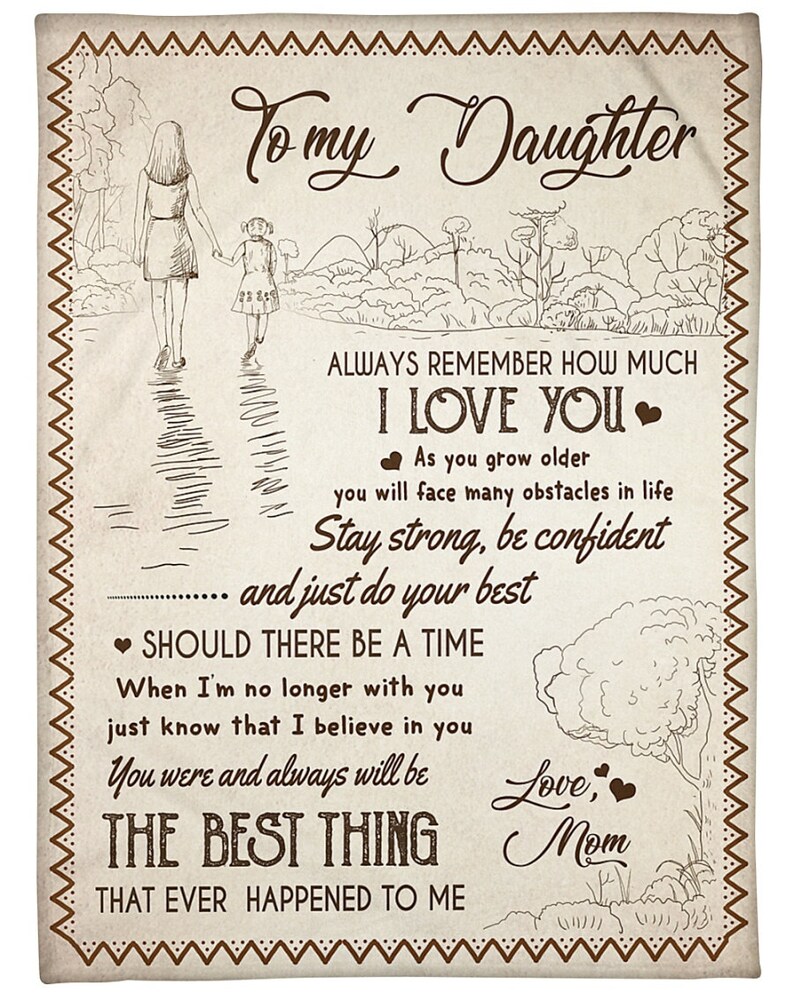 To my Daughter
ALWAYS REMEMBER HOW MUCH
I LOVE YOU
As you grow older
you will face many obstacles in life
Stay strong, be confident
and just do your best
SHOULD THERE BE A TIME
When I'm no longer with you
just know that I believe in you
You were and always will be
THE BEST THING
THAT EVER HAPPENED TO ME
Love,
Mom